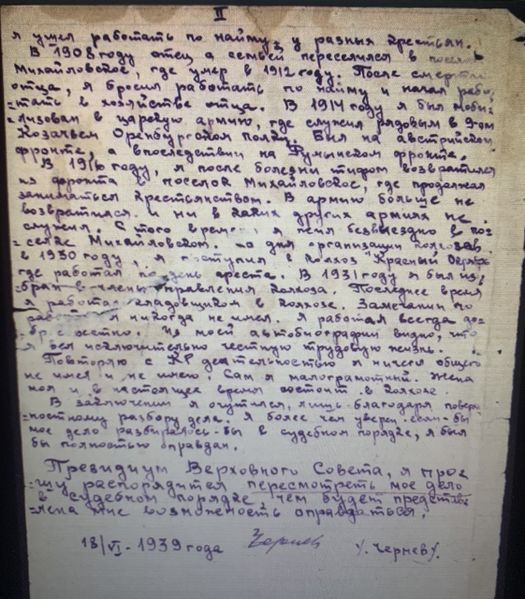 II
я ушел работать по найму, у разных крестьян.
В 1908 году отец с семьей переселился в поселок
Михайловское, где умер в 1912 году. После смерти
отца, я бросил работать по найму и начал рабо,
тать в хозяйстве отца. В 1914 году я был моби
=лизован в царскую армию, где служил рядовым в 9-ом
Козачьем Оренбургском полку. Был на австрийском
фронте, а впоследствии на Румынском фронте.
В 1916 году, я после болезни тифом возвратился
из фронта в поселок Михайловское, где продолжал
заниматься крестьянством. В армию больше не
возвратился и ни в каких других армиях не
служил. С того времени я жил безвыездно в по=
=селке Михайловском. до организации колхозов.
в 1930 году, я поступил в колхоз "Красный Октябрь
где работал по день ареста. В 1931 году я был из,
=бран в члены правления колхоза. Последнее время
я работал кладовщиком в колхозе. Замечании по
работе я никогда не имел. Я работал всегда до=
бросовестно. Из моей автобиографии видно, что
я вел исключительно честную трудовую жизнь.
Повторяю с КР деятельностью я ничего общего
не имел и не имею. Сам я малограмотный. Жена
моя и в настоящее время состоит в колхозе.
В заключении я очутился, лишь благодаря поверх
=ностному разбору дела. Я более чем уверен если-бы
мое дело разбиралось-бы в судебном порядке, я был
бы полностью оправдан.
Президиум Верховного Совета, я про=
=шу распорядится пересмотреть мое дело
в судебном порядке, чем будет представ
=лена мне возможность оправдаться.
18/VI-1939 года Чернев /У. Чернев У.